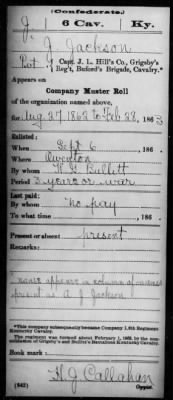 (Confederate.)
J | 6 Cav. | Ky.
J. Jackson
Pvt., Capt. J. L. Hill's Co., Grigsby's
Reg't, Buford's Brigade, Cavalry.*
Appears on
Company Muster Roll
of the organization named above,
for Aug 27, 1862 to Feb 28, 1863
Enlisted:
When Sept 6, 186 .
Where Owenton
By whom W. G. Bullett
Period 3 years or war
Last paid:
By whom no pay
To what time , 186 .
Present or absent present
Remarks:
name appears in column of names
present as A. J. Jackson
*This company subsequently became Company I, 6th Regiment
Kentucky Cavalry.
The regiment was formed about February 1, 1863, by the con-
solidation of Grigsby's and Bullitt's Battalions Kentucky Cavalry.
Book mark:
H. J. Callahan
(642) Copyist.